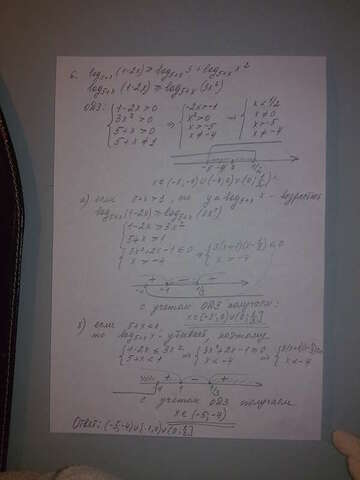 6. log₅₊ₓ(1-2x) ≥ log₅₊ₓ3 + log₅₊ₓ x²
log₅₊ₓ(1-2x) ≥ log₅₊ₓ(3x²)
ОДЗ: { 1-2x>0 ⇒ { -2x>-1 ⇒ { x<1/2
3x²>0 x²>0 x≠0
5+x>0 x>-5 x>-5
5+x≠1 x≠-4 x≠-4
-5 -4 0 1/2 x
x∈(-5;-4)∪(-4;0)∪(0;1/2).
а) если 5+x>1, то y=log₅₊ₓ x - возрастает
log₅₊ₓ(1-2x) ≥ log₅₊ₓ(3x²)
{ 1-2x ≥ 3x²
5+x>1
{ 3x²+2x-1≤0 ⇒ { 3(x+1)(x-1/3)≤0
x>-4 x>-4
+ - +
-4 -1 1/3
с учетом ОДЗ получаем:
x∈[-1;0)∪(0;1/3]
б) если 5+x<1,
то log₅₊ₓ x - убывает, поэтому
{ 1-2x ≤ 3x² ⇒ { 3x²+2x-1≥0 ⇒ { 3(x+1)(x-1/3)≥0
5+x<1 x<-4 x<-4
+ - +
с учетом ОДЗ получаем
x∈(-5;-4)
Ответ: (-5;-4)∪[-1;0)∪(0;1/3]